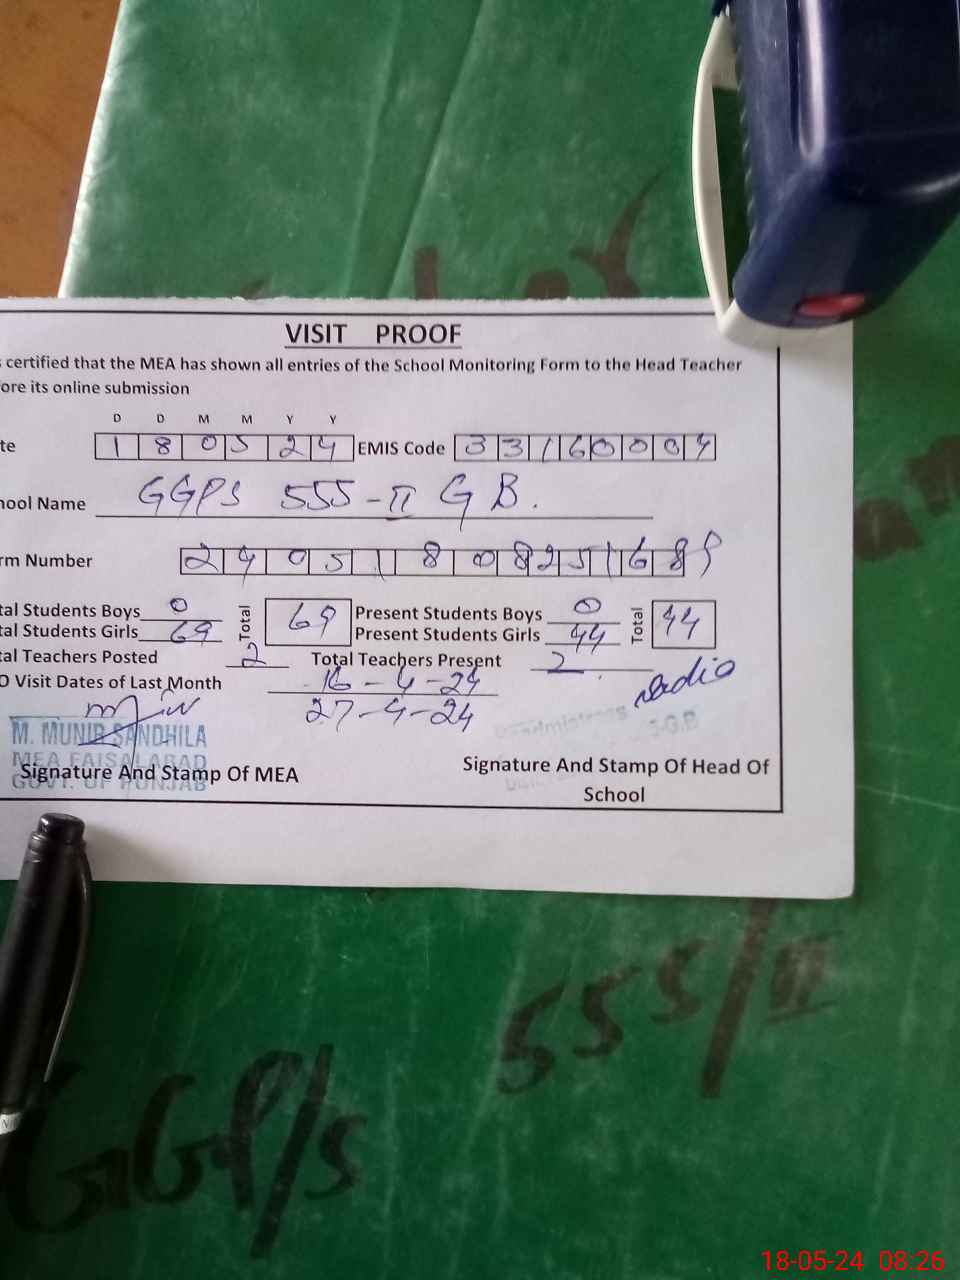 VISIT PROOF
certified that the MEA has shown all entries of the School Monitoring Form to the Head Teacher
ore its online submission
D D M M Y Y
te 1 8 0 5 2 4 EMIS Code 3 3 1 6 0 0 0 4
hool Name GGPS 555-II G B.
rm Number 2 4 0 5 1 8 0 8 2 5 1 6 8 9
tal Students Boys 0 Total 69 Present Students Boys 0 Total 44
tal Students Girls 69 Present Students Girls 44
tal Teachers Posted 2 Total Teachers Present 2
O Visit Dates of Last Month 16-4-24
27-4-24
M. MUNIR SANDHILA
MEA FAISALABAD
GOVT. OF PUNJAB
Signature And Stamp Of MEA
Signature And Stamp Of Head Of
School
555/II
GGP/S
18-05-24 08:26